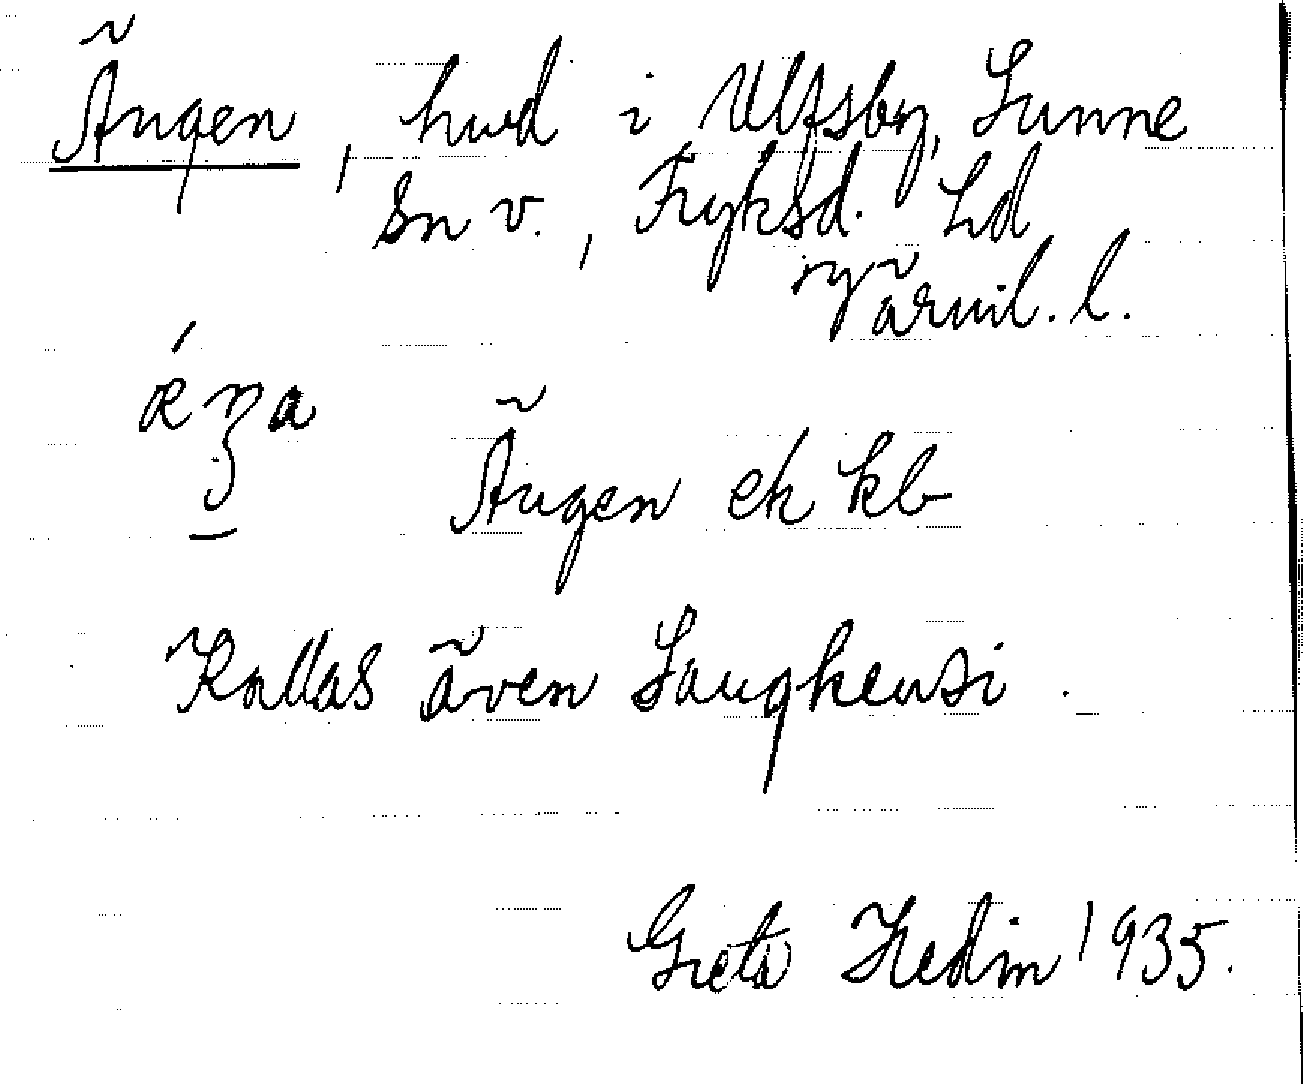 Ängen, hmd i Ulfsby, Sunne
Sn v., Fryksd. hd
Värml. l.
Ängen ek kb
Kallas även
Greta Hedin 1935.